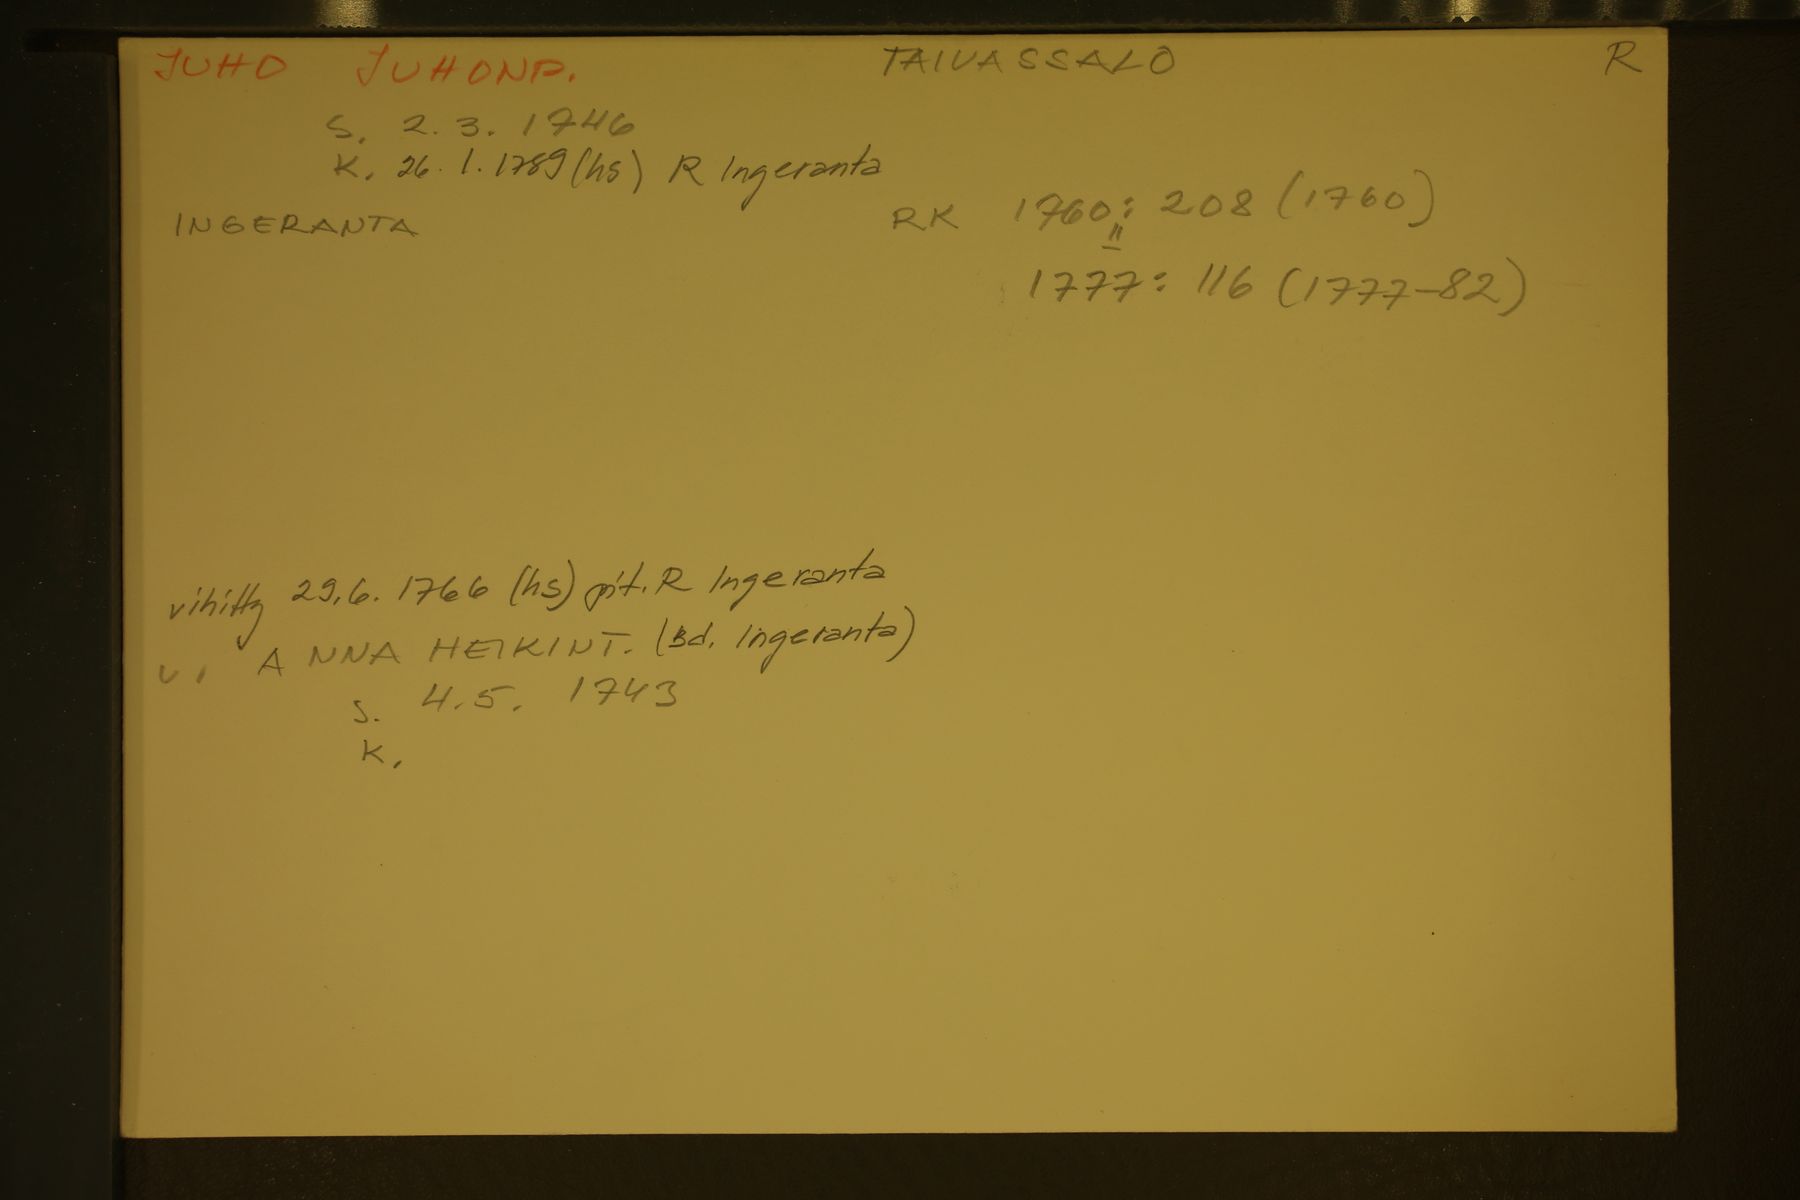 JUHO JUHONP. TAIVASSALO R
S. 2.3. 1746
K. 26.1.1789 (hs) R Ingeranta
INGERANTA RK 1760: 208 (1760)
"
1777: 116 (1777-82)
vihitty 29.6. 1766 (hs) pit. R Ingeranta
V. ANNA HEIKINT. (Bd. Ingeranta)
S. 4.5. 1743
K.